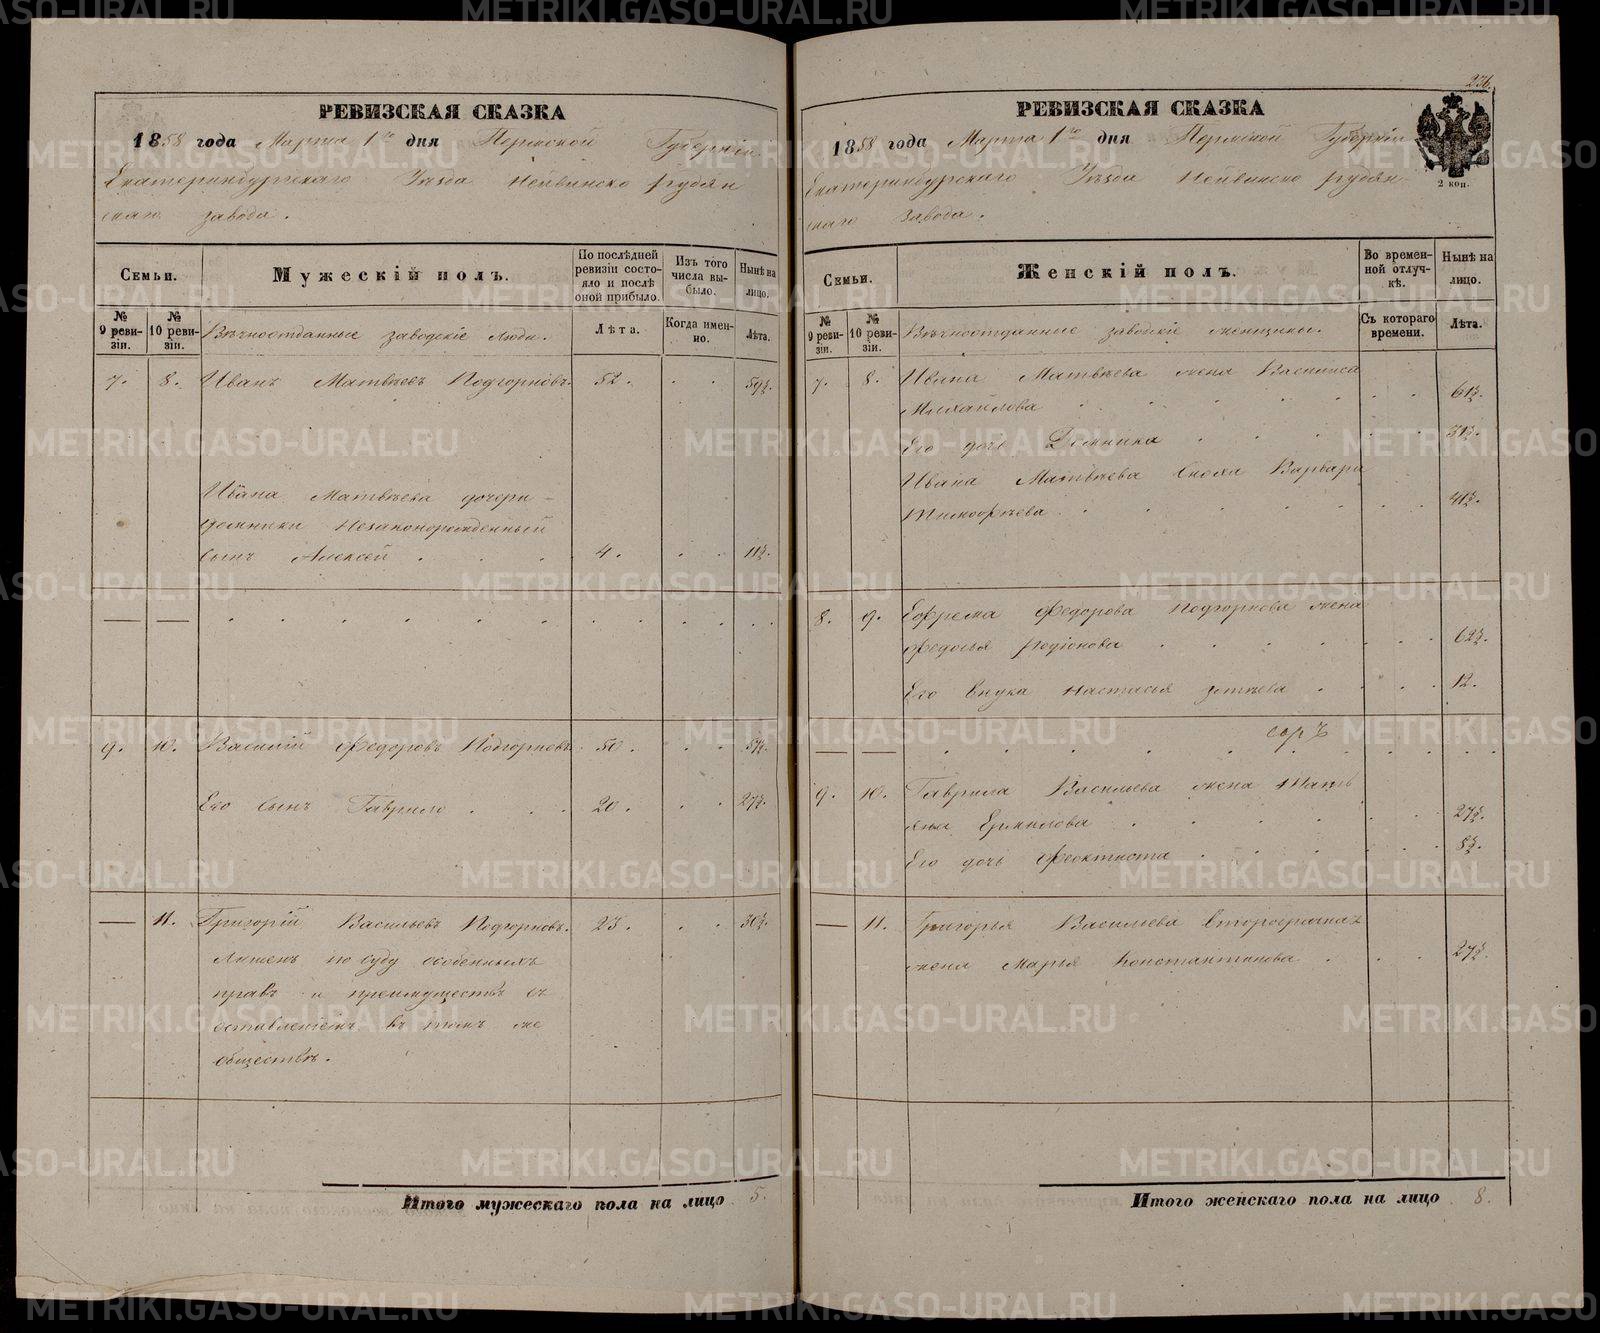 РЕВИЗСКАЯ СКАЗКА
1858 года Марта 1го дня Пермской Губерніи
Екатеринбургскаго Уѣзда Нейвинско рудян
скаго завода.
Семьи.
Мужескій полъ.
По послѣдней ревизіи состояло и послѣ оной прибыло.
Изъ того числа выбыло.
Нынѣ на лицо.
№ 9 ревизіи.
№ 10 ревизіи.
Вѣчноотданные заводскіе люди.
Лѣта.
Когда именно.
Лѣта.
7. 8. Иванъ Матвѣевъ Подгорновъ. 52. 59½.
Ивана Матвѣева дочери
Домники Незаконорожденный
сынъ Алексей 4. 11½.
9. 10. Василій Федоровъ Подгорновъ. 50. 57½.
Его сынъ Гаврило 20. 27½.
11. Григорій Васильевъ Подгорновъ. 23. 30½.
Лишенъ по суду особенныхъ
правъ и преимуществъ съ
оставленіемъ въ томъ же
обществѣ.
Итого мужескаго пола на лицо 5.
236.
РЕВИЗСКАЯ СКАЗКА
1858 года Марта 1го дня Пермской Губерніи
Екатеринбургскаго Уѣзда Нейвинско рудян-
скаго завода.
2 коп.
Семьи.
Женскій полъ.
Во временной отлучкѣ.
Нынѣ на лицо.
№ 9 ревизіи.
№ 10 ревизіи.
Вѣчноотданные заводскіе женщины.
Съ котораго времени.
Лѣта.
7. 8. Ивана Матвѣева жена Василиса
Михайлова 61½.
Его дочь Домника 31½.
Ивана Матвѣева сноха Варвара
Тимофеева 41½.
8. 9. Ефрема Федорова Подгорнова жена
Федосья Родіонова 62½.
Его внука Настасья Зотѣева 12.
9. 10. Гаврила Васильева жена Тать
яна Ермилова 27½.
Его дочь Феоктиста 8½.
11. Григорья Васильева второбрачная
жена Марья Константинова 27½.
Итого женскаго пола на лицо 8.
METRIKI.GASO-URAL.RU